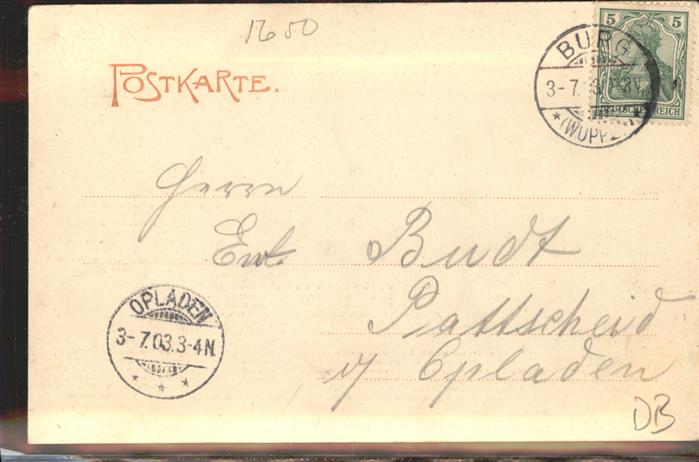 1650
POSTKARTE.
5 5
DEUTSCHES REICH
BURG
3-7.
(WUPPER)
Herrn
Ewl. Budt
Pattscheid
b/ Opladen
OPLADEN
3-7.03.3-4N.
DB